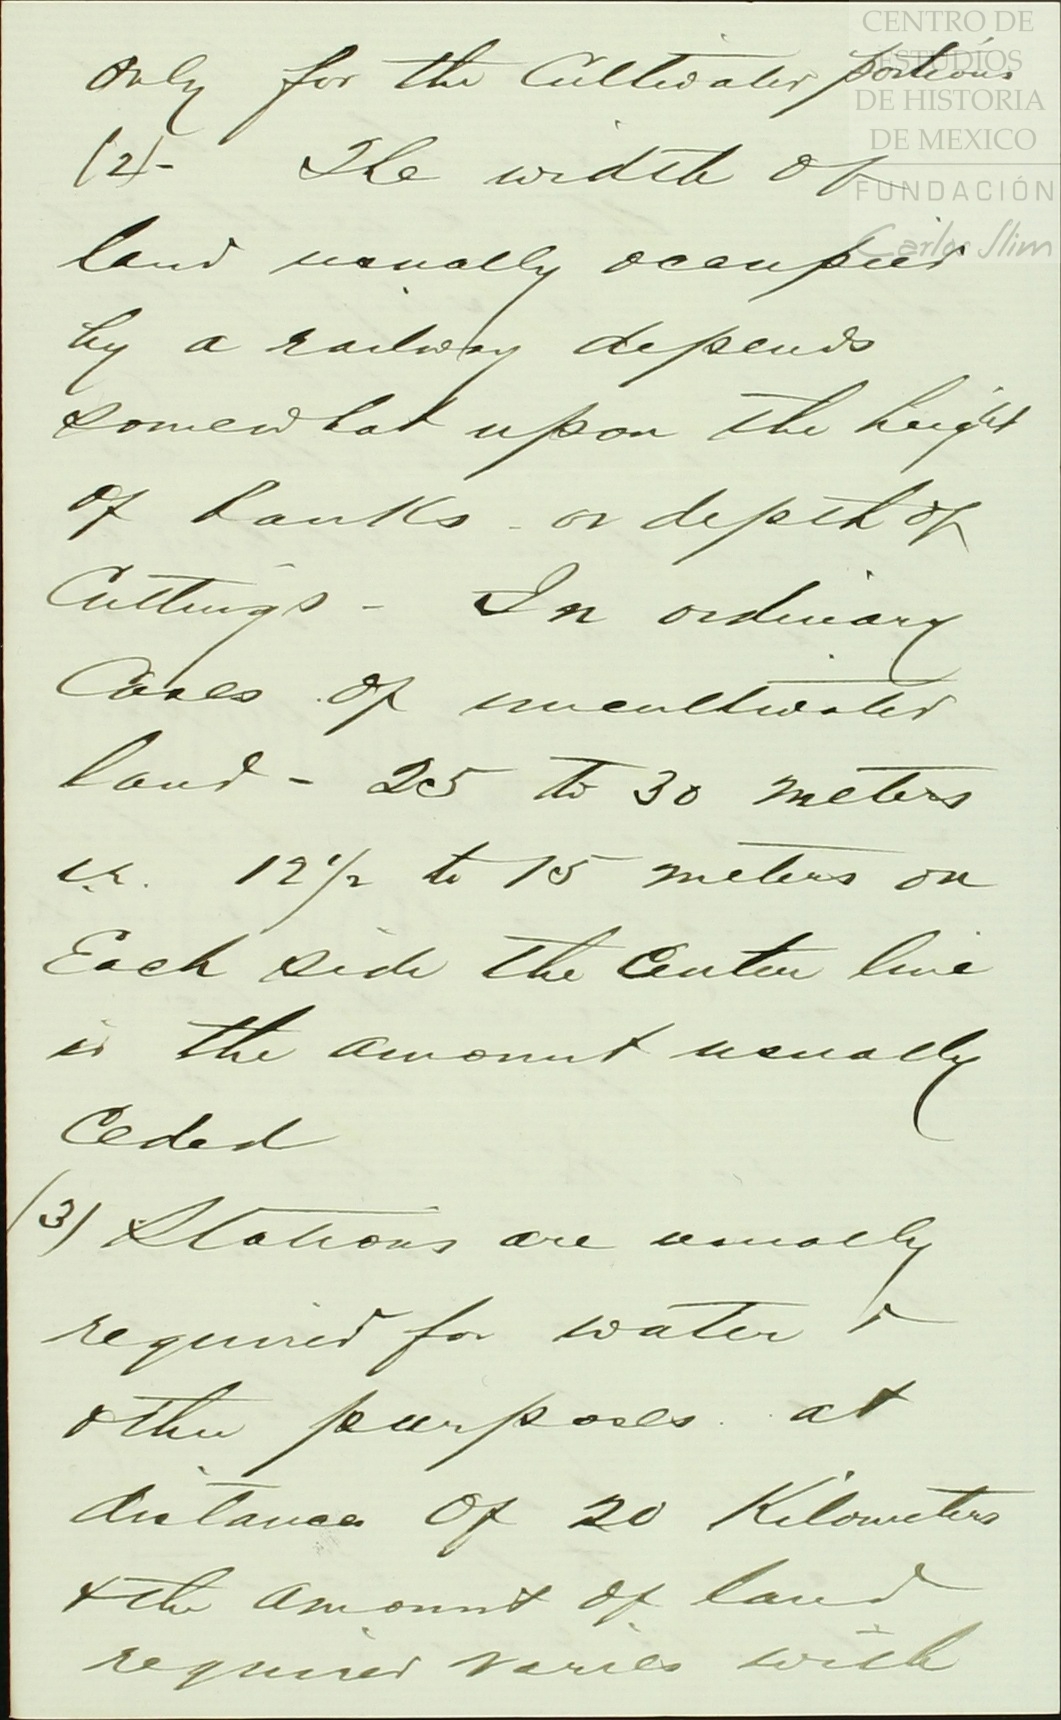 CENTRO DE
ESTUDIOS
DE HISTORIA
DE MEXICO
FUNDACIÓN
Carlos Slim
only for the Cultivated portions
(2)- The width of
land usually occupied
by a railway depends
somewhat upon the height
of banks - or depth of
Cuttings - In ordinary
Cases of uncultivated
land - 25 to 30 meters
i.e. 12 1/2 to 15 meters on
Each side the Center line
is the amount usually
Ceded
(3) Stations are usually
required for water &
other purposes at
distances of 20 Kilometers
& the amount of land
required varies with